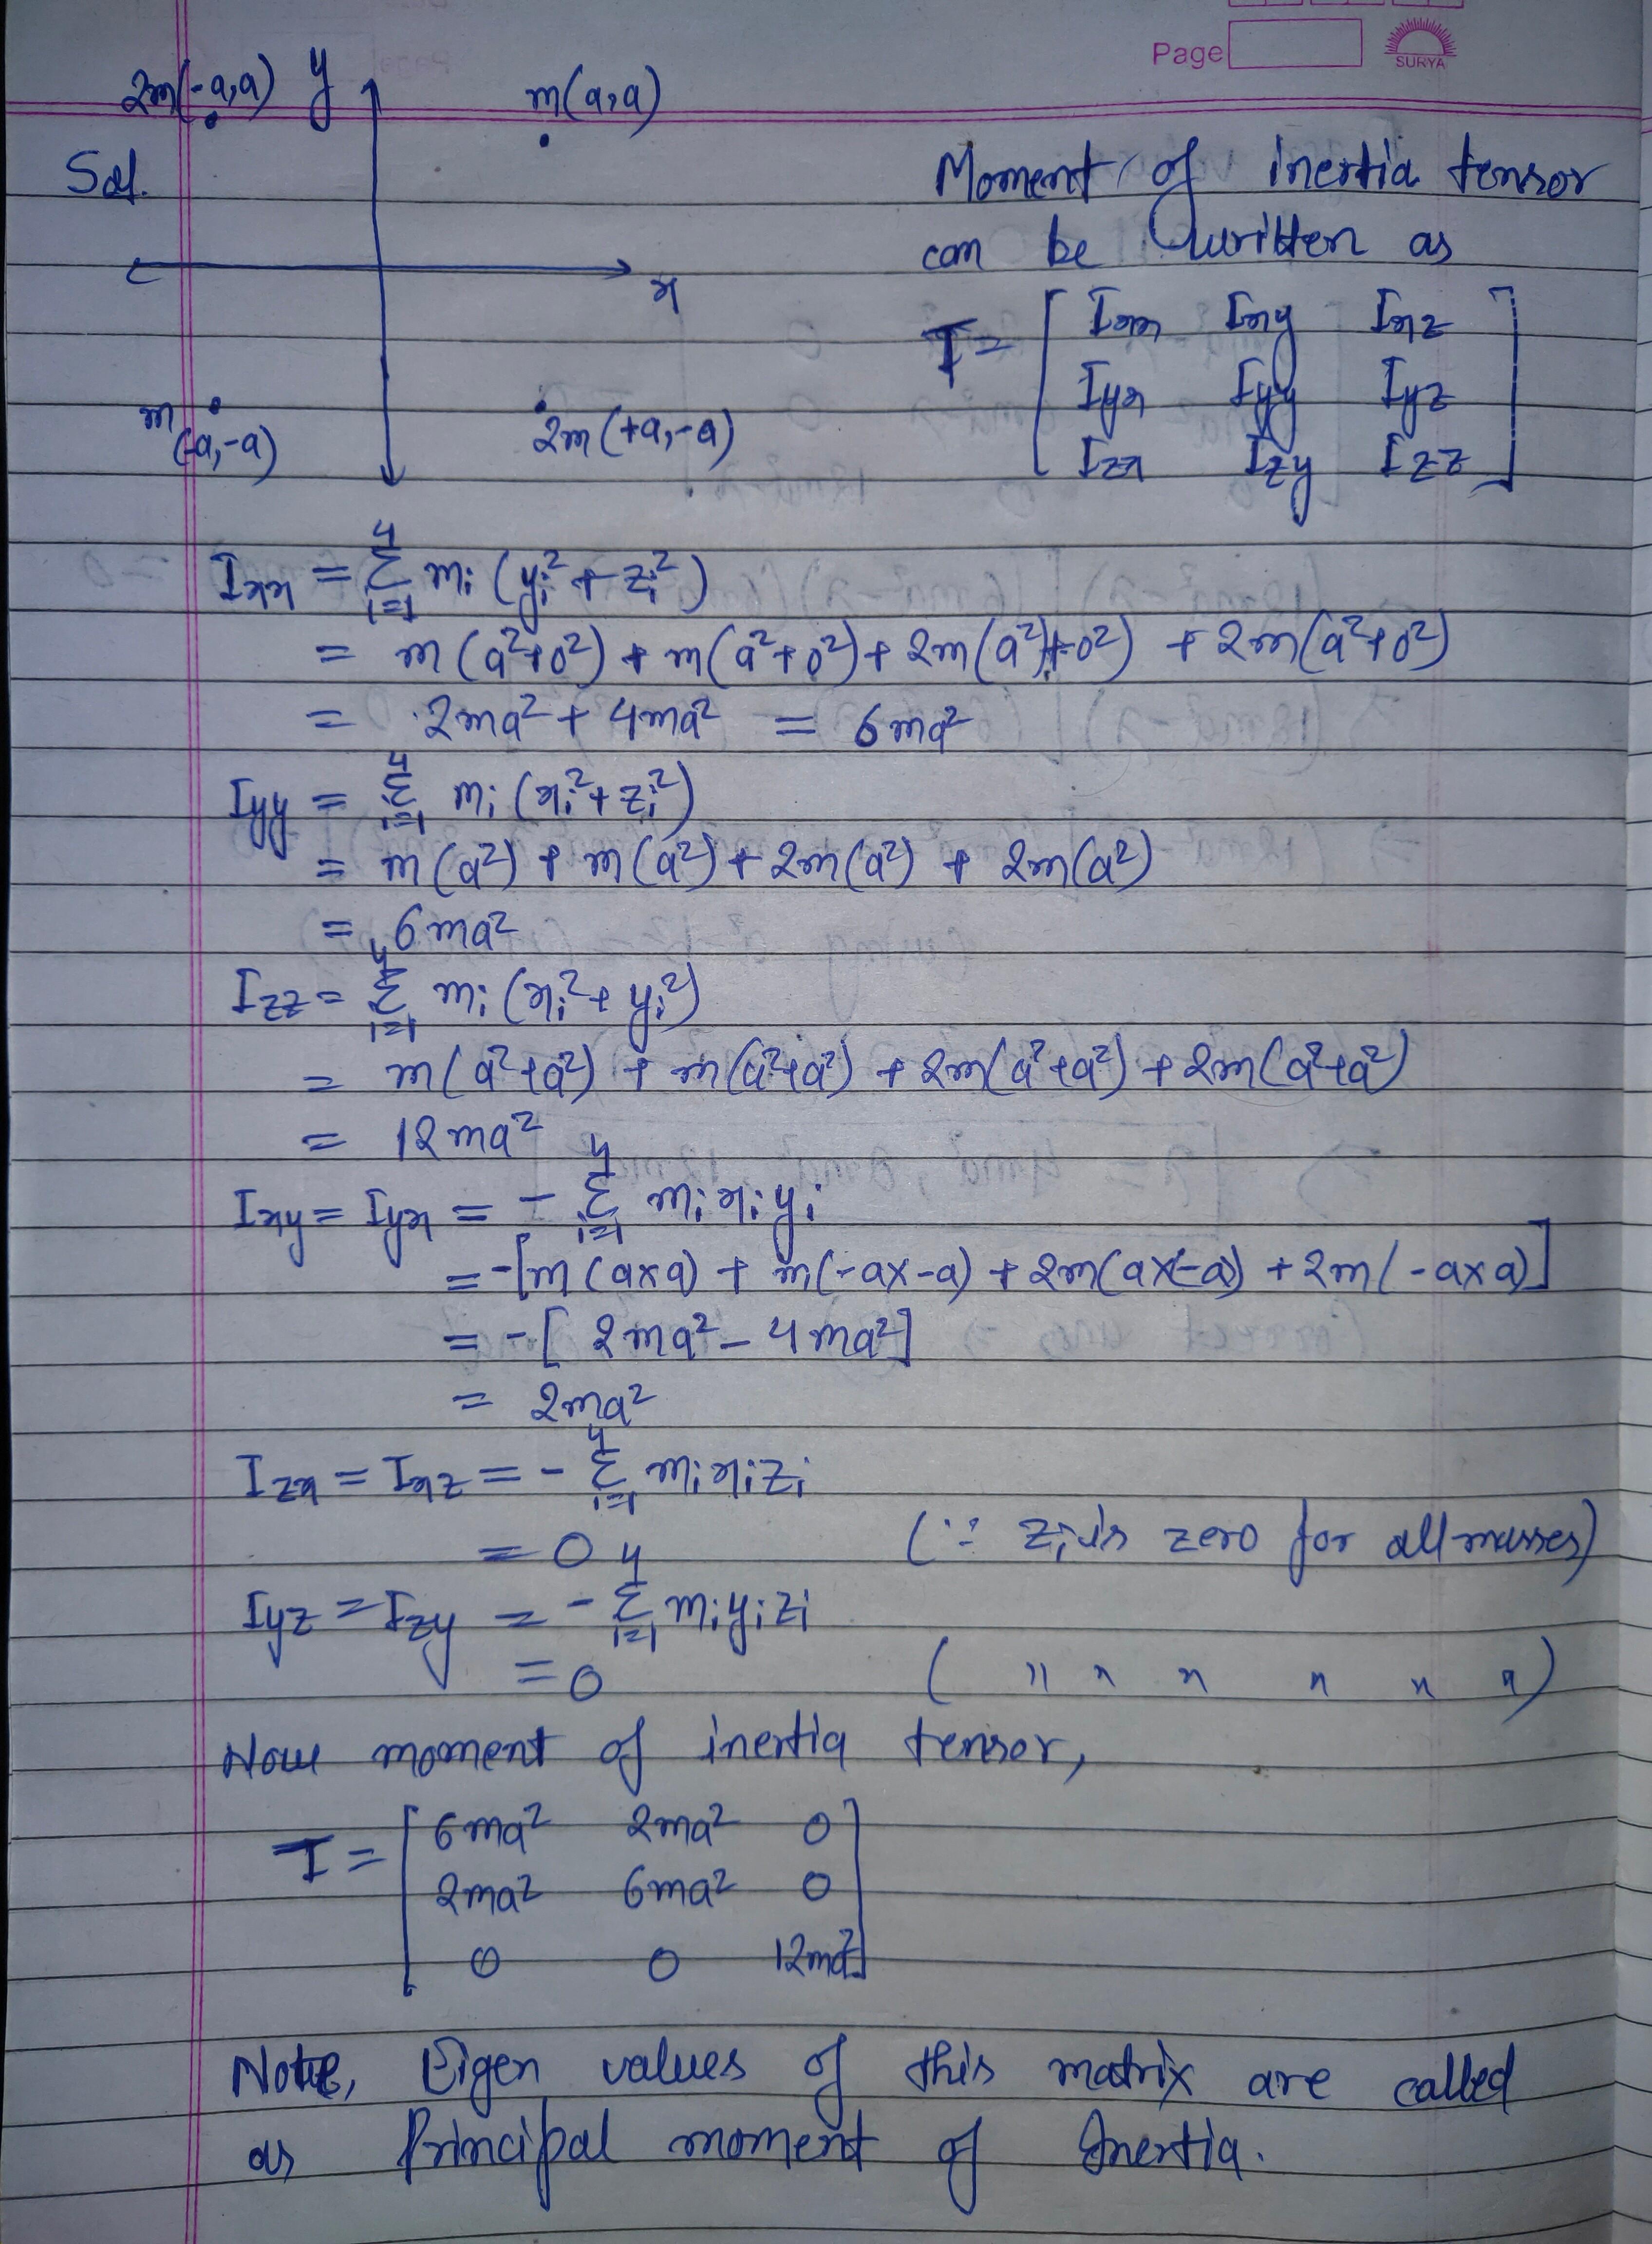 Page
SURYA
2m(-a,a) y m(a,a)
Sol.
x
m (-a,-a)
2m(+a,-a)
Moment of inertia tensor
can be written as
I = [ Ixx Ixy Ixz
Iyx Iyy Iyz
Izx Izy Izz ]
Ixx = Σ_{i=1}^{4} mi (yi² + zi²)
= m(a²+0²) + m(a²+0²) + 2m(a²+0²) + 2m(a²+0²)
= 2ma² + 4ma² = 6ma²
Iyy = Σ_{i=1}^{4} mi (xi² + zi²)
= m(a²) + m(a²) + 2m(a²) + 2m(a²)
= 6ma²
Izz = Σ_{i=1}^{4} mi (xi² + yi²)
= m(a²+a²) + m(a²+a²) + 2m(a²+a²) + 2m(a²+a²)
= 12ma²
Ixy = Iyx = - Σ_{i=1}^{4} mi xi yi
= -[m(a×a) + m(-a×-a) + 2m(a×-a) + 2m(-a×a)]
= -[2ma² - 4ma²]
= 2ma²
Izx = Ixz = - Σ_{i=1}^{4} mi xi zi
= 0 (∵ zi is zero for all masses)
Iyz = Izy = - Σ_{i=1}^{4} mi yi zi
= 0 ( " " " " " " )
Now moment of inertia tensor,
I = [ 6ma² 2ma² 0
2ma² 6ma² 0
0 0 12ma² ]
Note, Eigen values of this matrix are called
as Principal moment of Inertia.